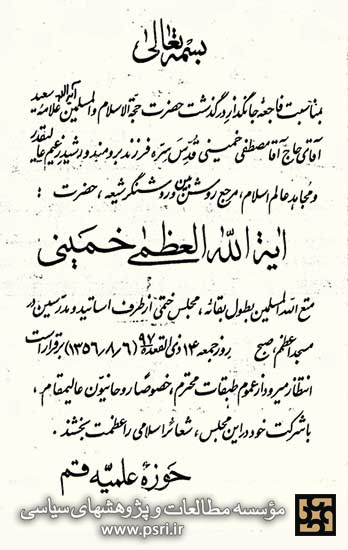 بسمه تعالی
بمناسبت فاجعهٔ جانگداز درگذشت حضرت حجة الاسلام والمسلمین آیة الله علامهٔ سعید
آقای حاج آقا مصطفی خمینی قدس سره فرزند برومند و رشید زعیم عالیقدر
و مجاهد عالم اسلام، مرجع روشن بین و روشنگر شیعه، حضرت :
آیة الله العظمی خمینی
متع الله المسلمین بطول بقائه، مجلس ختمی از طرف اساتید و مدرسین در
مسجد اعظم، صبح روز جمعه ۱۴ ذی القعده ۹۷ (۱۳۵۶/۸/۶) برقرار است
انتظار میرود از عموم طبقات محترم، خصوصاً روحانیون عالیمقام،
با شرکت خود در این مجلس، شعائر اسلامی را عظمت بخشند.
حوزهٔ علمیه قم
مؤسسه مطالعات و پژوهشهای سیاسی
www.psri.ir